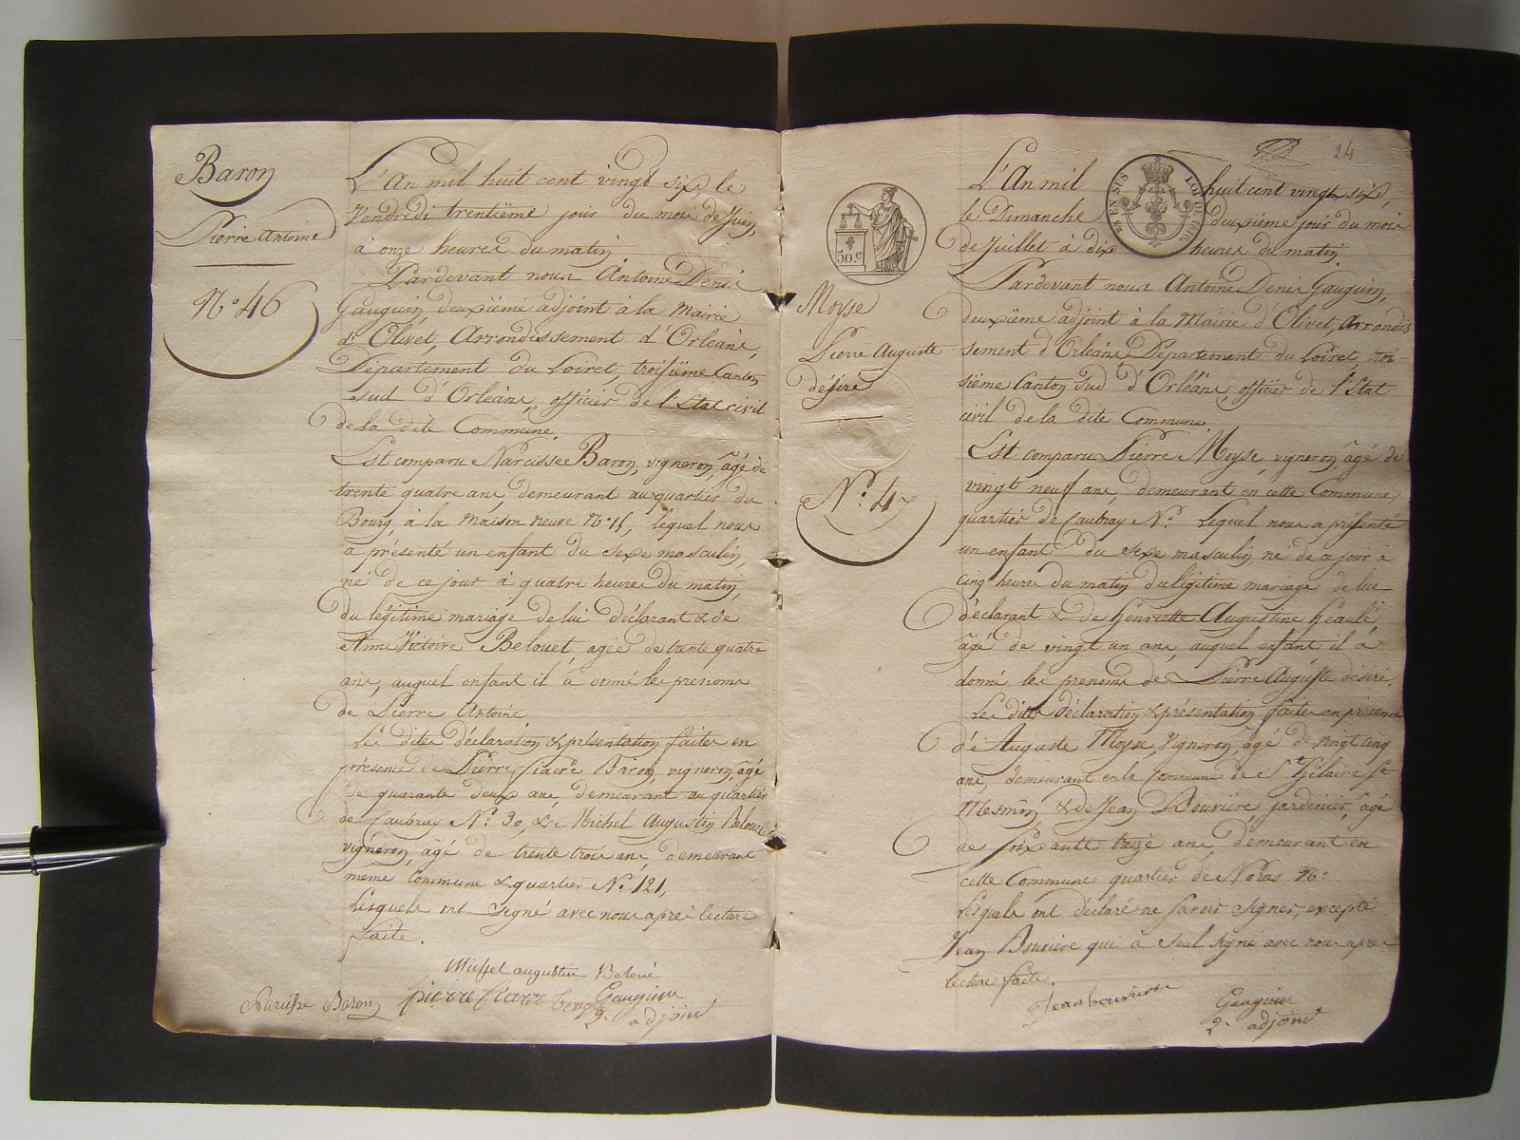 Baron
Pierre Antoine
N.o 46
L'An mil huit cent vingt six le
Vendredi trentième jour du mois de Juin,
à onze heures du matin
Pardevant nous Antoine Denis
Gauguin, deuxième adjoint à la Mairie
d'Olivet, Arrondissement d'Orléans,
Département du Loiret, troisième Canton
Sud d'Orléans, officier de l'Etat civil
de la dite Commune.
Est comparu Narcisse Baron, vigneron, âgé de
trente quatre ans, demeurant au quartier du
Bourg, à la maison neuve N.o 15, lequel nous
a présenté un enfant du sexe masculin,
né de ce jour à quatre heures du matin,
du légitime mariage de lui déclarant & de
Anne Victoire Belouet agée de trente quatre
ans, auquel enfant il a donné les prenoms
de Pierre Antoine
Les dites déclaration & présentation faites en
présence de Pierre Baron, vigneron, âgé
de quarante deux ans, demeurant au quartier
de Caubray N.o 30, & de Michel Augustin
vigneron, âgé de trente trois ans demeurant
même Commune & quartier N.o 121,
Lesquels ont signé avec nous après lecture
faite.
Michel augustin
Narcisse Baron
pierre
Gauguin
2. adjoint
24
EN SUS
30.c
Moyse
Pierre Auguste
désiré
N.o 47
L'An mil huit cent vingt six,
le Dimanche deuxième jour du mois
de Juillet à dix heures du matin,
Pardevant nous Antoine Denis Gauguin,
deuxième adjoint à la Mairie d'Olivet, Arrondis
sement d'Orléans Département du Loiret, troi-
sième Canton Sud d'Orléans, officier de l'Etat
civil de la dite Commune.
Est comparu Pierre Moyse, vigneron, âgé de
vingt neuf ans, demeurant en cette Commune
quartier de Caubray N.o lequel nous a présenté
un enfant du sexe masculin né de ce jour à
cinq heures du matin du légitime mariage de lui
déclarant & de henriette Augustine
âgé de vingt un ans, auquel enfant il a
donné les prenoms de Pierre Auguste désiré.
Les dites déclaration & présentation faites en présence
de Auguste Moyse vigneron, âgé de vingt cinq
ans, demeurant en la commune de St hilaire St
Mesmin & de Jean Bouvière, jardinier, âgé
de soixante treize ans demeurant en
cette Commune quartier de Noras N.o
Lesquels ont déclaré ne savoir signer, excepté
Jean Bouvière qui a seul signé avec nous après
lecture faite.
Gauguin
2. adjoint